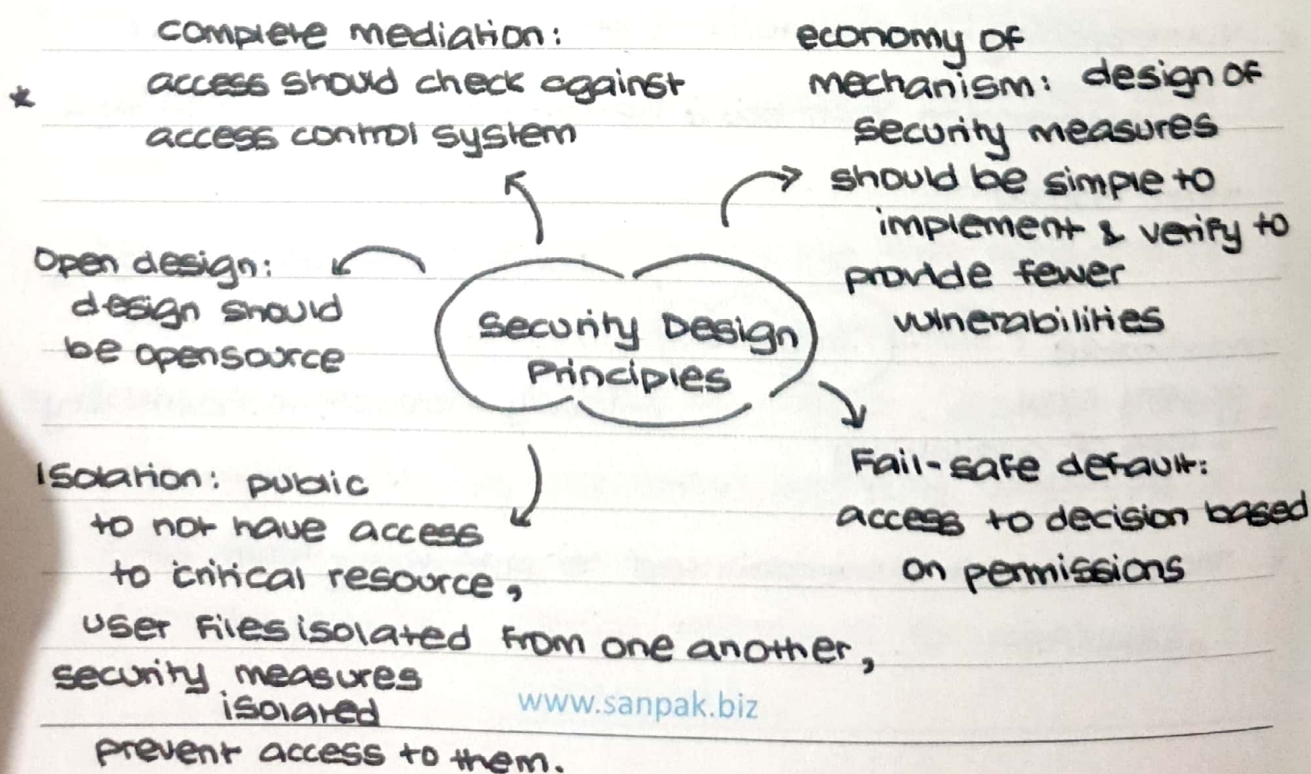 complete mediation:
* access should check against
access control system
economy of
mechanism: design of
security measures
should be simple to
implement & verify to
provide fewer
vulnerabilities
Open design:
design should
be opensource
Security Design
Principles
Isolation: public
to not have access
to critical resource,
user files isolated from one another,
security measures
isolated
prevent access to them.
Fail-safe default:
access to decision based
on permissions
www.sanpak.biz